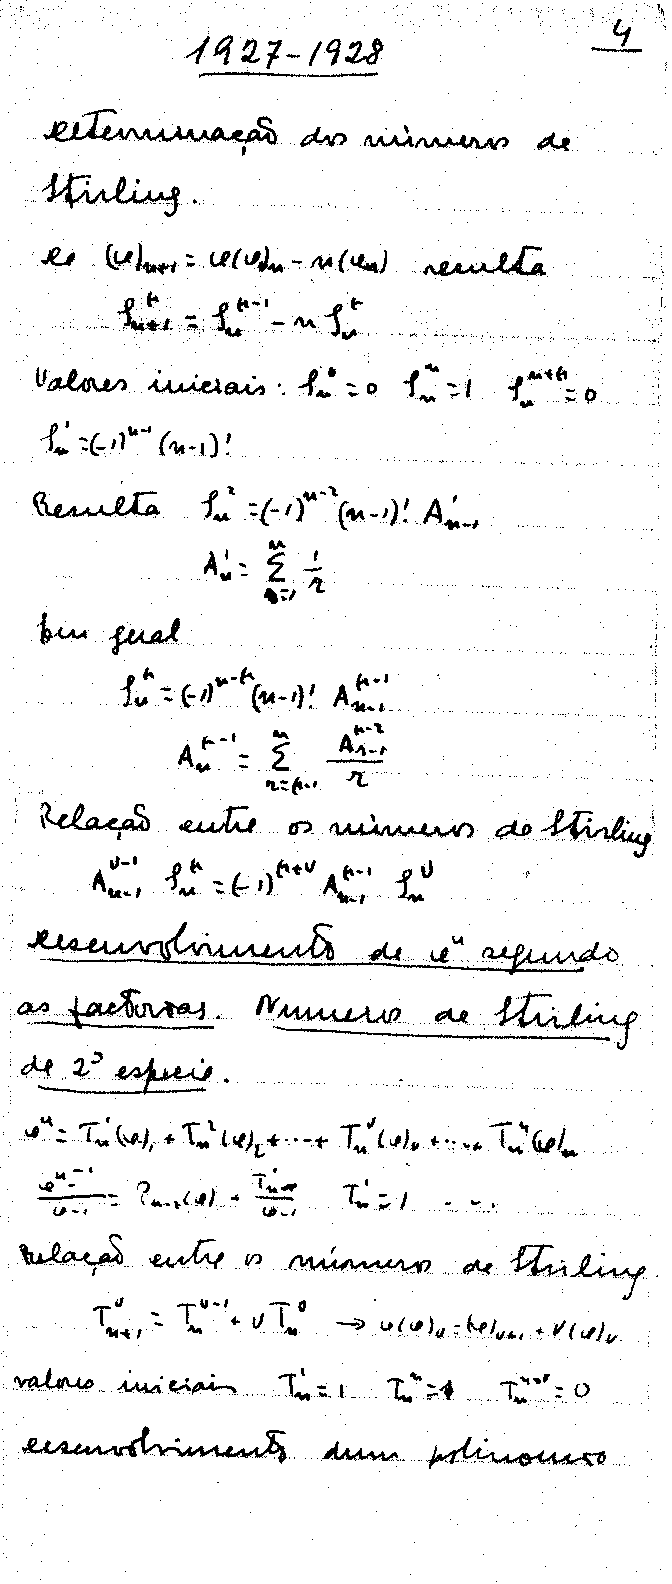 1927-1928
4
Determinação dos números de
Stirling.
De (φ)ₙ₊₁ = φ(φ)ₙ - n(φ)ₙ resulta
Sₙ₊₁ᵏ = Sₙᵏ⁻¹ - n Sₙᵏ
Valores iniciais: Sₙ⁰ = 0 Sₙⁿ = 1 Sₙⁿ⁺ᵏ = 0
Sₙ¹ = (-1)ⁿ⁻¹ (n-1)!
Resulta Sₙ² = (-1)ⁿ⁻² (n-1)! A¹ₙ₋₁
A¹ₙ = Σ 1/r
Em geral
Sₙᵏ = (-1)ⁿ⁻ᵏ (n-1)! Aₙ₋₁ᵏ⁻¹
Aₙᵏ⁻¹ = Σ Aᵣ₋₁ᵏ⁻² / r
Relação entre os números de Stirling
Aₙ₋₁ᵛ⁻¹ Sₙᵏ = (-1)ᵏ⁺ᵛ Aₙ₋₁ᵏ⁻¹ Sₙᵛ
Desenvolvimento de φⁿ segundo
as factoroas. Numeros de Stirling
de 2ª especie.
φⁿ = Tₙ¹(φ)₁ + Tₙ²(φ)₂ + ... + Tₙᵛ(φ)ᵥ + ... + Tₙⁿ(φ)ₙ
Tₙ¹ = 1 ...
Relação entre os números de Stirling
Tₙ₊₁ᵛ = Tₙᵛ⁻¹ + v Tₙᵛ → φ(φ)ᵥ = (φ)ᵥ₊₁ + v(φ)ᵥ
valores iniciais Tₙ¹ = 1 Tₙⁿ = 1 Tₙⁿ⁺ᵛ = 0
Desenvolvimento dum polinomio